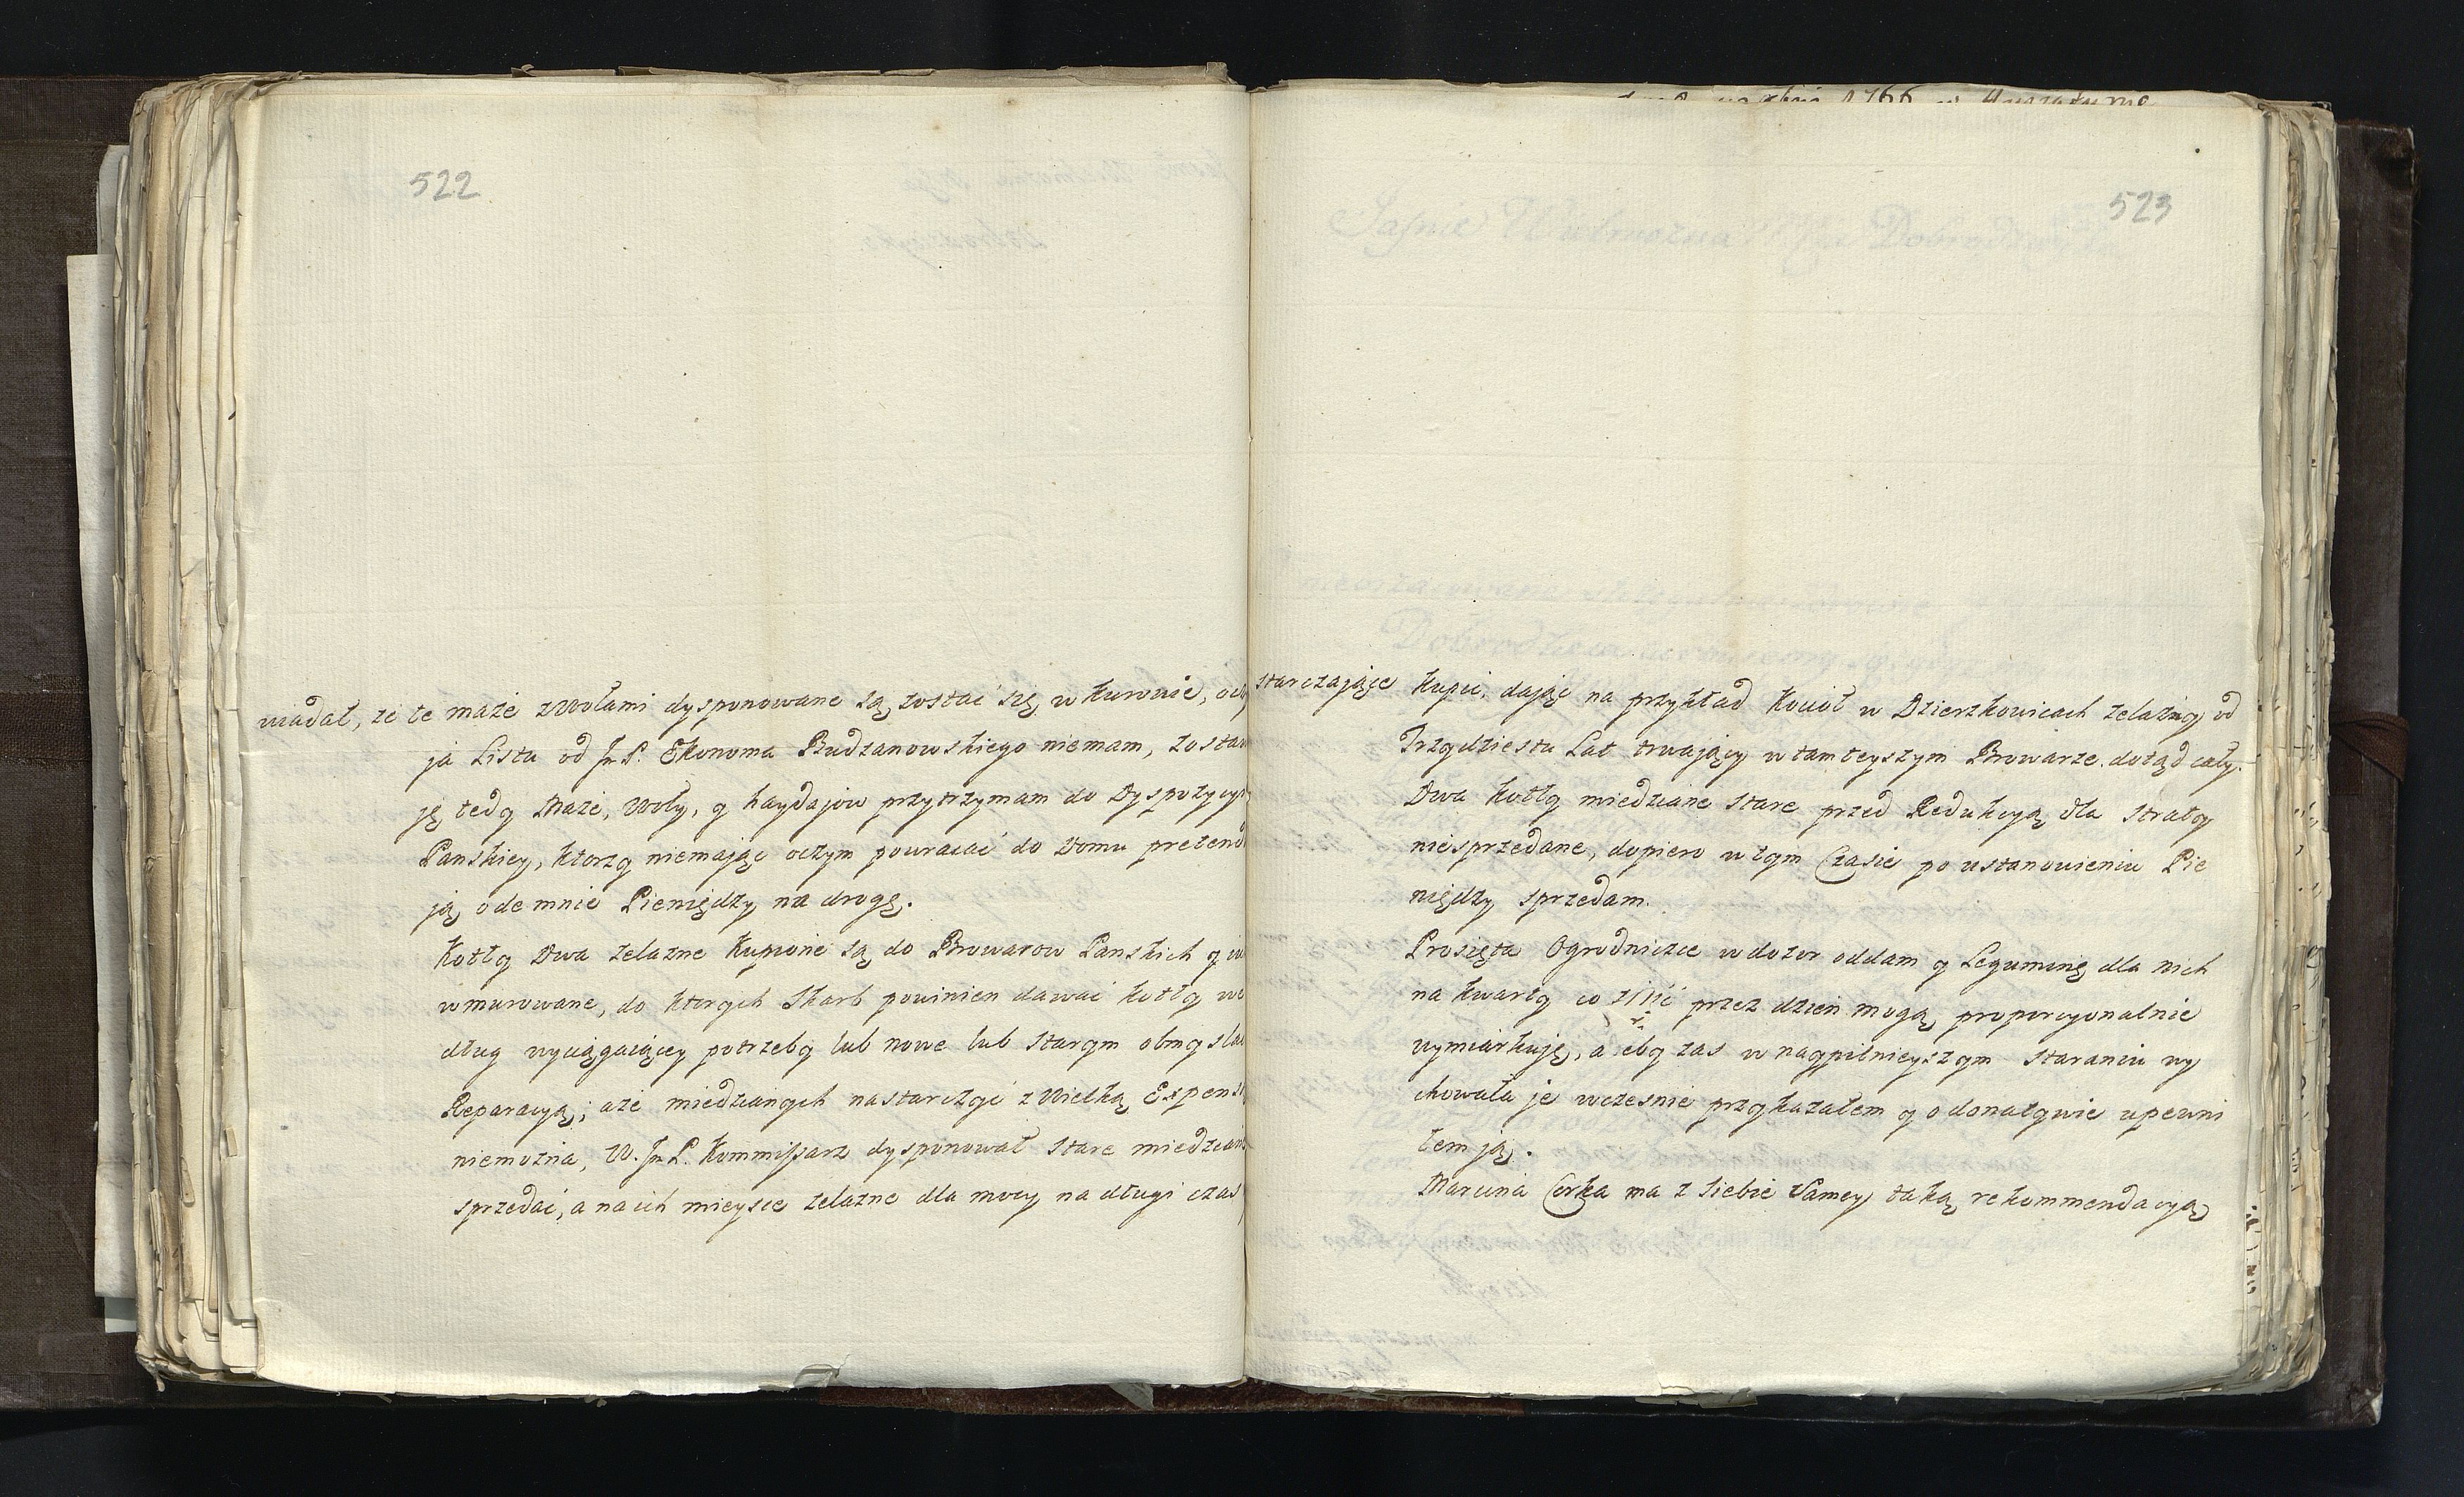 522
wiadał, że te maże z wołami dysponowane są zostać się w Kurowie,
ja Lista od Jm P. Ekonoma Budzanowskiego niemam, zostaw
ję tedy Maże, Woły, y haydajow przytrzymam do Dyspozycyi
Panskiey, ktorzy niemając oczym powracać do Domu pretendu
ją odemnie Pieniędzy na drogę.
Kotły Dwa żelazne Kupione są do Browarow Panskich y
wmurowane, do ktorych Skarb powinien dawać kotły we
dług wyciągaiącey potrzeby lub nowe lub starym obmyslać
Reparacyą; aże miedzianych nastarczyć z Wielką Expens
niemożna, W. Jm P. Kommissarz dysponował stare miedziane
sprzedać, a na ich mieysce żelazne dla mocy na długi czas
523
starczające Kupić, dając na przykład Kocioł w Dzierzkowicach żelazny od
Trzydziestu Lat trwający w tamteyszym Browarze dotąd cały.
Dwa Kotły miedziane stare przed Redukcyą dla straty
niesprzedane, dopiero w tym Czasie po ustanowieniu Pie
niędzy sprzedam.
Prosięta Ogrodniczce w dozor oddam y Leguminę dla nich
na kwarty co przez dzień mogą proporcyonalnie
wymiarkuję, a eby zas w naypilnieyszym staraniu wy
chowała je wczesnie przykazałem y o donatywie upewni
łem ją.
Marcina Corka ma z siebie samey taką rekommendacyą